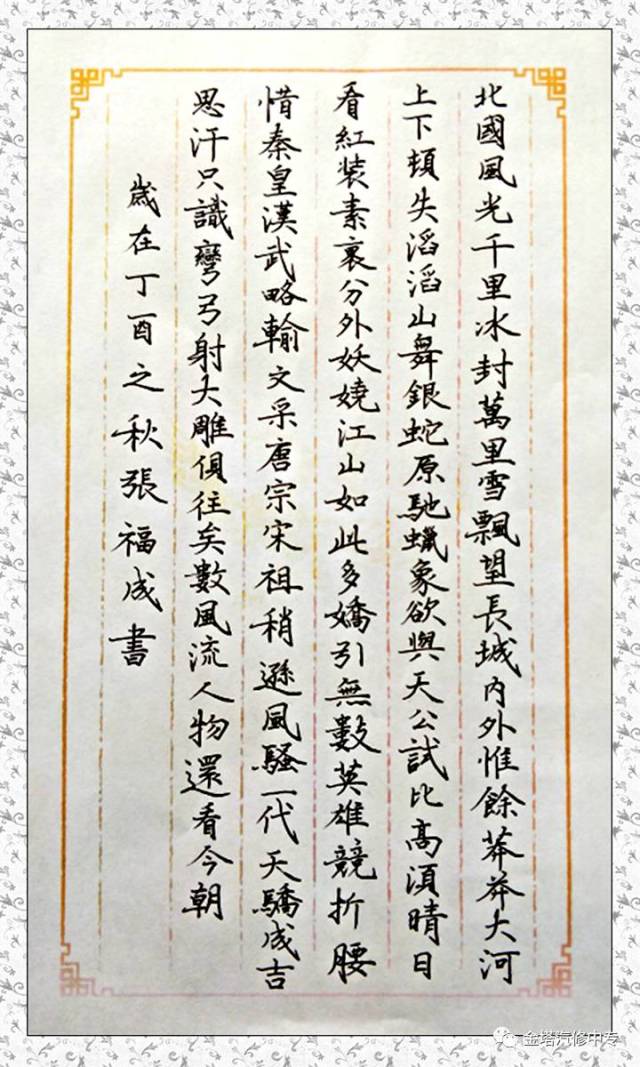 北國風光千里冰封萬里雪飄望長城內外惟餘莽莽大河
上下頓失滔滔山舞銀蛇原馳蠟象欲與天公試比高須晴日
看紅装素裹分外妖嬈江山如此多嬌引無數英雄競折腰
惜秦皇漢武略輸文采唐宗宋祖稍遜風騷一代天驕成吉
思汗只識彎弓射大雕俱往矣數風流人物還看今朝
歲在丁酉之秋張福成書
金塔汽修中专